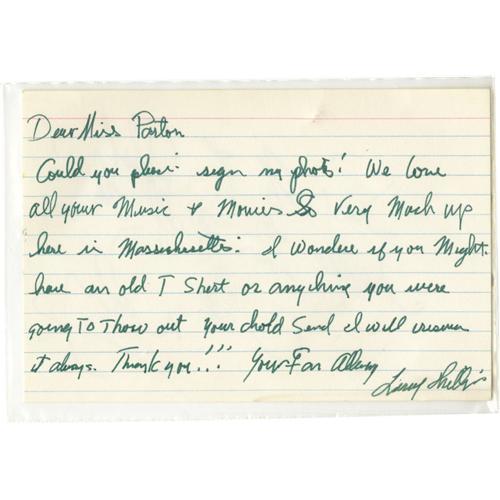 Dear Miss Parton
Could you please sign my photo! We love
all your Music & Movies So Very Much up
here in Massachusetts. I Wondere if you Might
have an old T Shert or anything you were
going To Throw out your chold Send I will
it always. Thank you!!! Your Fan Always